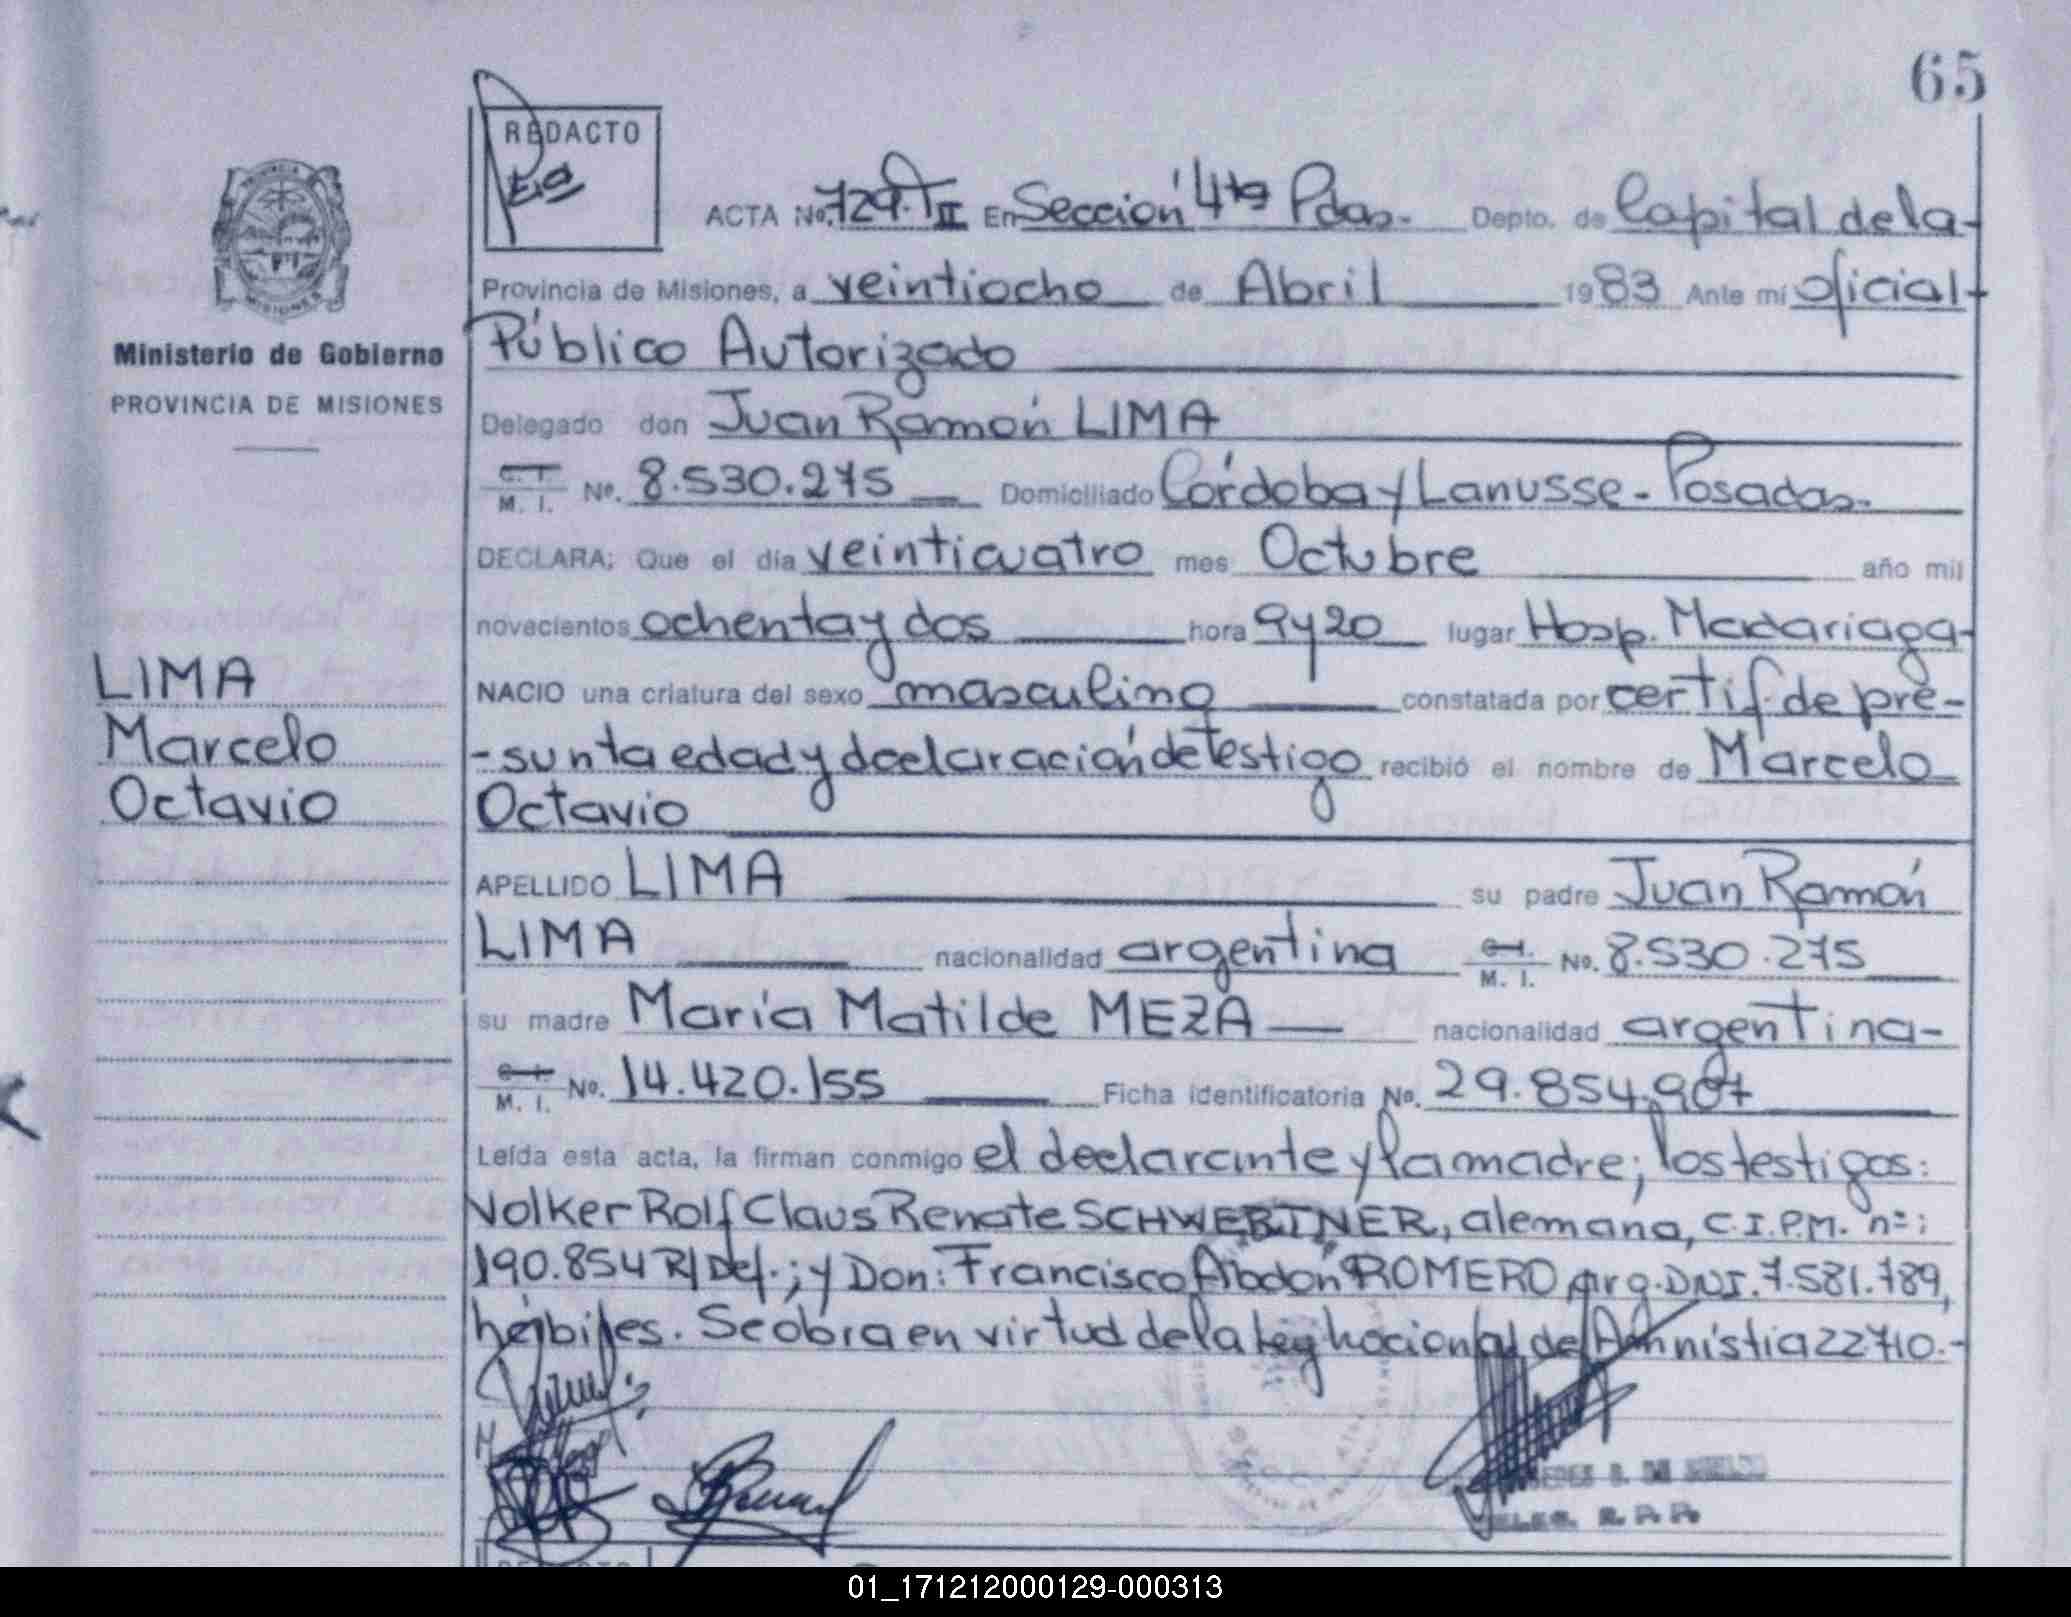 65
REDACTO
ACTA No. 729. T II En Sección 4ta Pdas. Depto. de Capital de la-
Provincia de Misiones, a veintiocho de Abril 1983 Ante mi oficial
Público Autorizado
Delegado don Juan Ramón LIMA
C. I. M. I. No. 8.530.275 Domiciliado Córdoba y Lanusse - Posadas.
DECLARA: Que el día veinticuatro mes Octubre año mil
novecientos ochenta y dos hora 9 y 20 lugar Hosp. Madariaga-
NACIO una criatura del sexo masculino constatada por certif. de pre-
-sunta edad y declaración de testigo recibió el nombre de Marcelo
Octavio
APELLIDO LIMA su padre Juan Ramón
LIMA nacionalidad argentina C. I. M. I. No. 8.530.275
su madre María Matilde MEZA nacionalidad argentina-
C. I. M. I. No. 14.420.155 Ficha identificatoria No. 29.854.907
Leída esta acta, la firman conmigo el declarante y la madre; los testigos:
Volker Rolf Claus Renate SCHWERTNER, alemana, C.I.P.M. nº:
190.854 R/Def.; y Don: Francisco Abdón ROMERO, arg. DNI. 7.581.789,
hábiles. Se obra en virtud de la Ley nacional de Amnistia 22710.-
DE
R. P. P.
PROVINCIA
MISIONES
Ministerio de Gobierno
PROVINCIA DE MISIONES
LIMA
Marcelo
Octavio
01_171212000129-000313